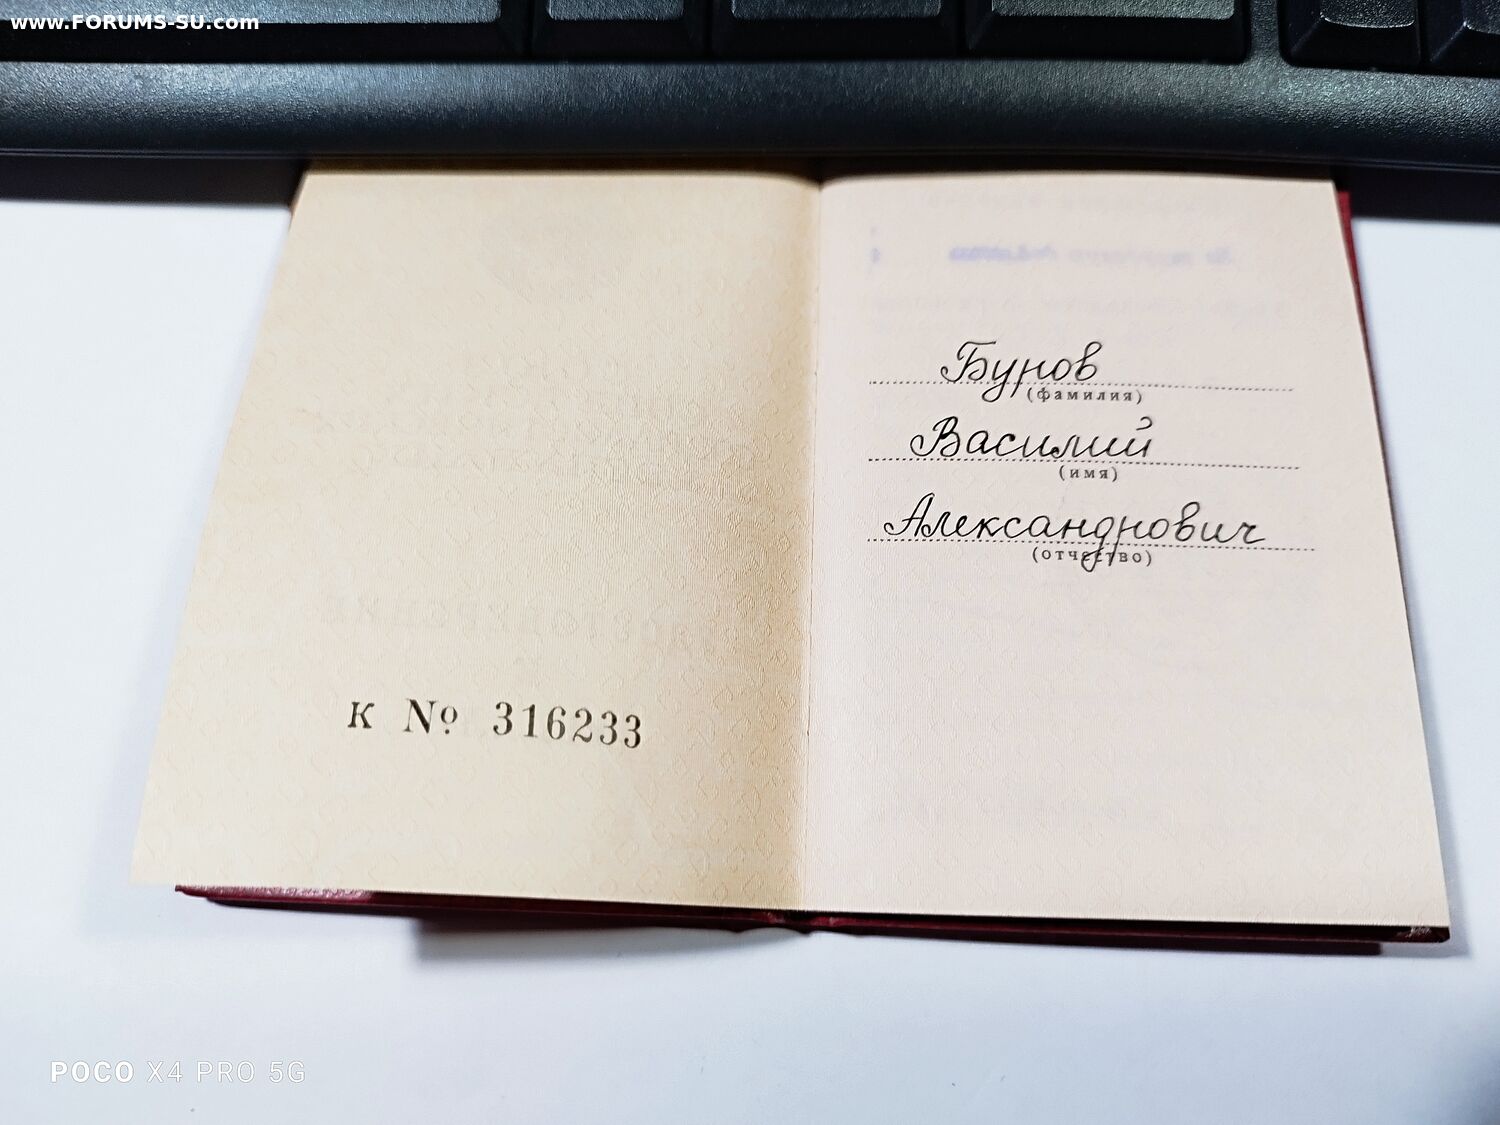 www.FORUMS-SU.com
Буров
(фамилия)
Василий
(имя)
Александрович
(отчество)
К № 316233
POCO X4 PRO 5G